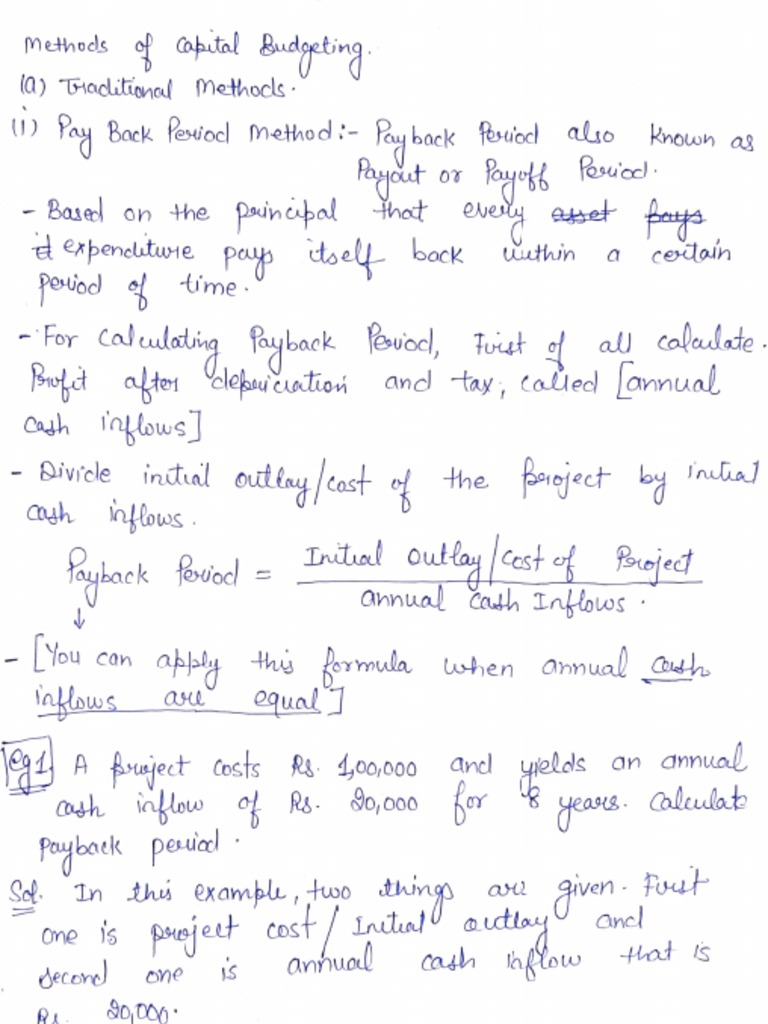 Methods of Capital Budgeting.
(a) Traditional Methods.
(i) Pay Back Period Method:- Payback Period also known as
Payout or Payoff Period.
- Based on the principal that every asset pays
it expenditure pays itself back within a certain
period of time.
- For calculating Payback Period, First of all calculate.
Profit after depriciation and tax, called [annual
cash inflows]
- Divide initial outlay/cost of the project by initial
cash inflows.
Payback Period = Initial Outlay/Cost of Project
annual Cash Inflows.
↓
- [You can apply this formula when annual cash
inflows are equal]
eg1 A project costs Rs. 1,00,000 and yields an annual
cash inflow of Rs. 20,000 for 8 years. Calculate
payback period.
Sol. In this example, two things are given. First
one is project cost/Initial outlay and
second one is annual cash inflow that is
Rs. 20,000.